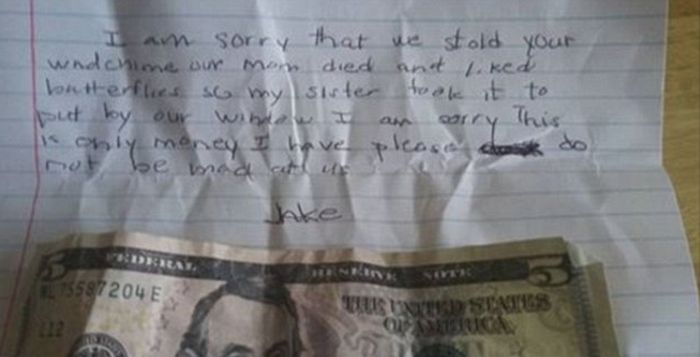 I am sorry that we stold your
windchime our mom died and liked
butterflies so my sister took it to
put by our window I am sorry This
is only money I have please do
not be mad at us
Jake
5 FEDERAL RESERVE NOTE 5
75587204 E
THE UNITED STATES
L12
OF AMERICA